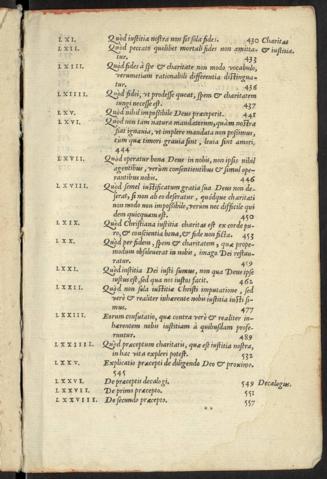 LXI. Quòd iustitia nostra non sit sola fidei. 430 Charitas
LXII. Quòd peccato quolibet mortali fides non amitta- & iustitia.
tur. 433
LXIII. Quòd fides à spe & charitate non modo vocabulo,
verumetiam rationabili differentia distingua-
tur. 436
LXIIII. Quòd fidei, vt prodesse queat, spem & charitatem
iungi necesse est. 437
LXV. Quòd nihil impossibile Deus præceperit. 441
LXVI. Quòd non tam natura mandatorum, quàm nostra
fiat ignauia, vt implere mandata non possimus,
cùm quæ timori grauia sint, leuia sint amori.
444
LXVII. Quòd operatur bona Deus in nobis, non ipsis nihil
agentibus, verùm consentientibus & simul ope-
rantibus nobis. 446
LXVIII. Quòd semel iustificatum gratia sua Deus non de-
serat, si non ab eo deseratur, quódque charitati
non modo non impossibile, verùm nec difficile qui
dem quicquam est. 450
LXIX. Quòd Christiana iustitia charitas est ex corde pu-
ro, & conscientia bona, & fide non ficta. 453
LXX. Quòd per fidem, spem & charitatem, quæ prope-
modum obsoleuerat in nobis, imago Dei restau-
ratur. 459
LXXI. Quòd iustitia Dei iusti sumus, non qua Deus ipse
iustus est, sed qua nos iustos facit. 462
LXXII. Quòd non sola iustitiæ Christi imputatione, sed
verè & realiter inhærente nobis iustitia iusti si-
mus. 477
LXXIII. Eorum confutatio, quæ contra verè & realiter in-
hærentem nobis iustitiam à quibusdam profe-
runtur. 489
LXXIIII. Quòd præceptum charitatis, quæ est iustitia nostra,
in hac vita expleri potest. 532
LXXV. Explicatio præcepti de diligendo Deo & proximo.
545
LXXVI. De præceptis decalogi. 549 Decalogus.
LXXVII. De primo præcepto. 551
LXXVIII. De secundo præcepto. 557